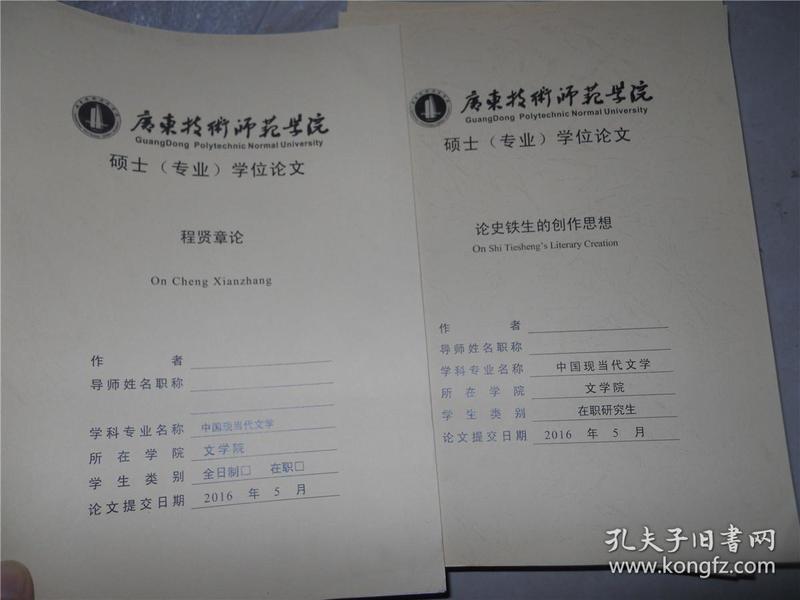 廣東技術師範學院
GuangDong Polytechnic Normal University
硕士（专业）学位论文
程贤章论
On Cheng Xianzhang
作者
导师姓名职称
学科专业名称 中国现当代文学
所在学院 文学院
学生类别 全日制□ 在职□
论文提交日期 2016 年 5 月
廣東技術師範學院
GuangDong Polytechnic Normal University
硕士（专业）学位论文
论史铁生的创作思想
On Shi Tiesheng's Literary Creation
作者
导师姓名职称
学科专业名称 中国现当代文学
所在学院 文学院
学生类别 在职研究生
论文提交日期 2016 年 5 月
孔夫子旧书网
www.kongfz.com